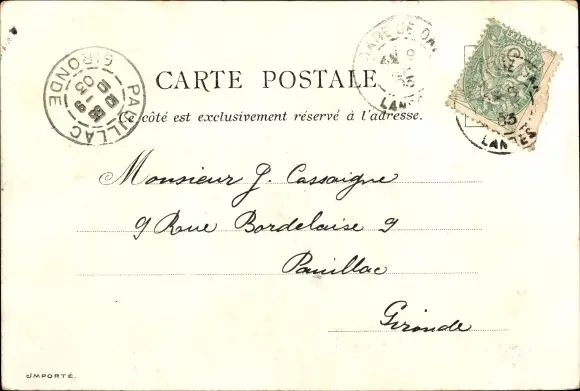 CARTE POSTALE
Ce côté est exclusivement réservé à l'adresse.
Monsieur J. Cassaigne
9 Rue Bordelaise 9
Pauillac
Gironde
PAUILLAC
GIRONDE
03
GARE DE DAX
LANDES
LANDES
IMPORTÉ.